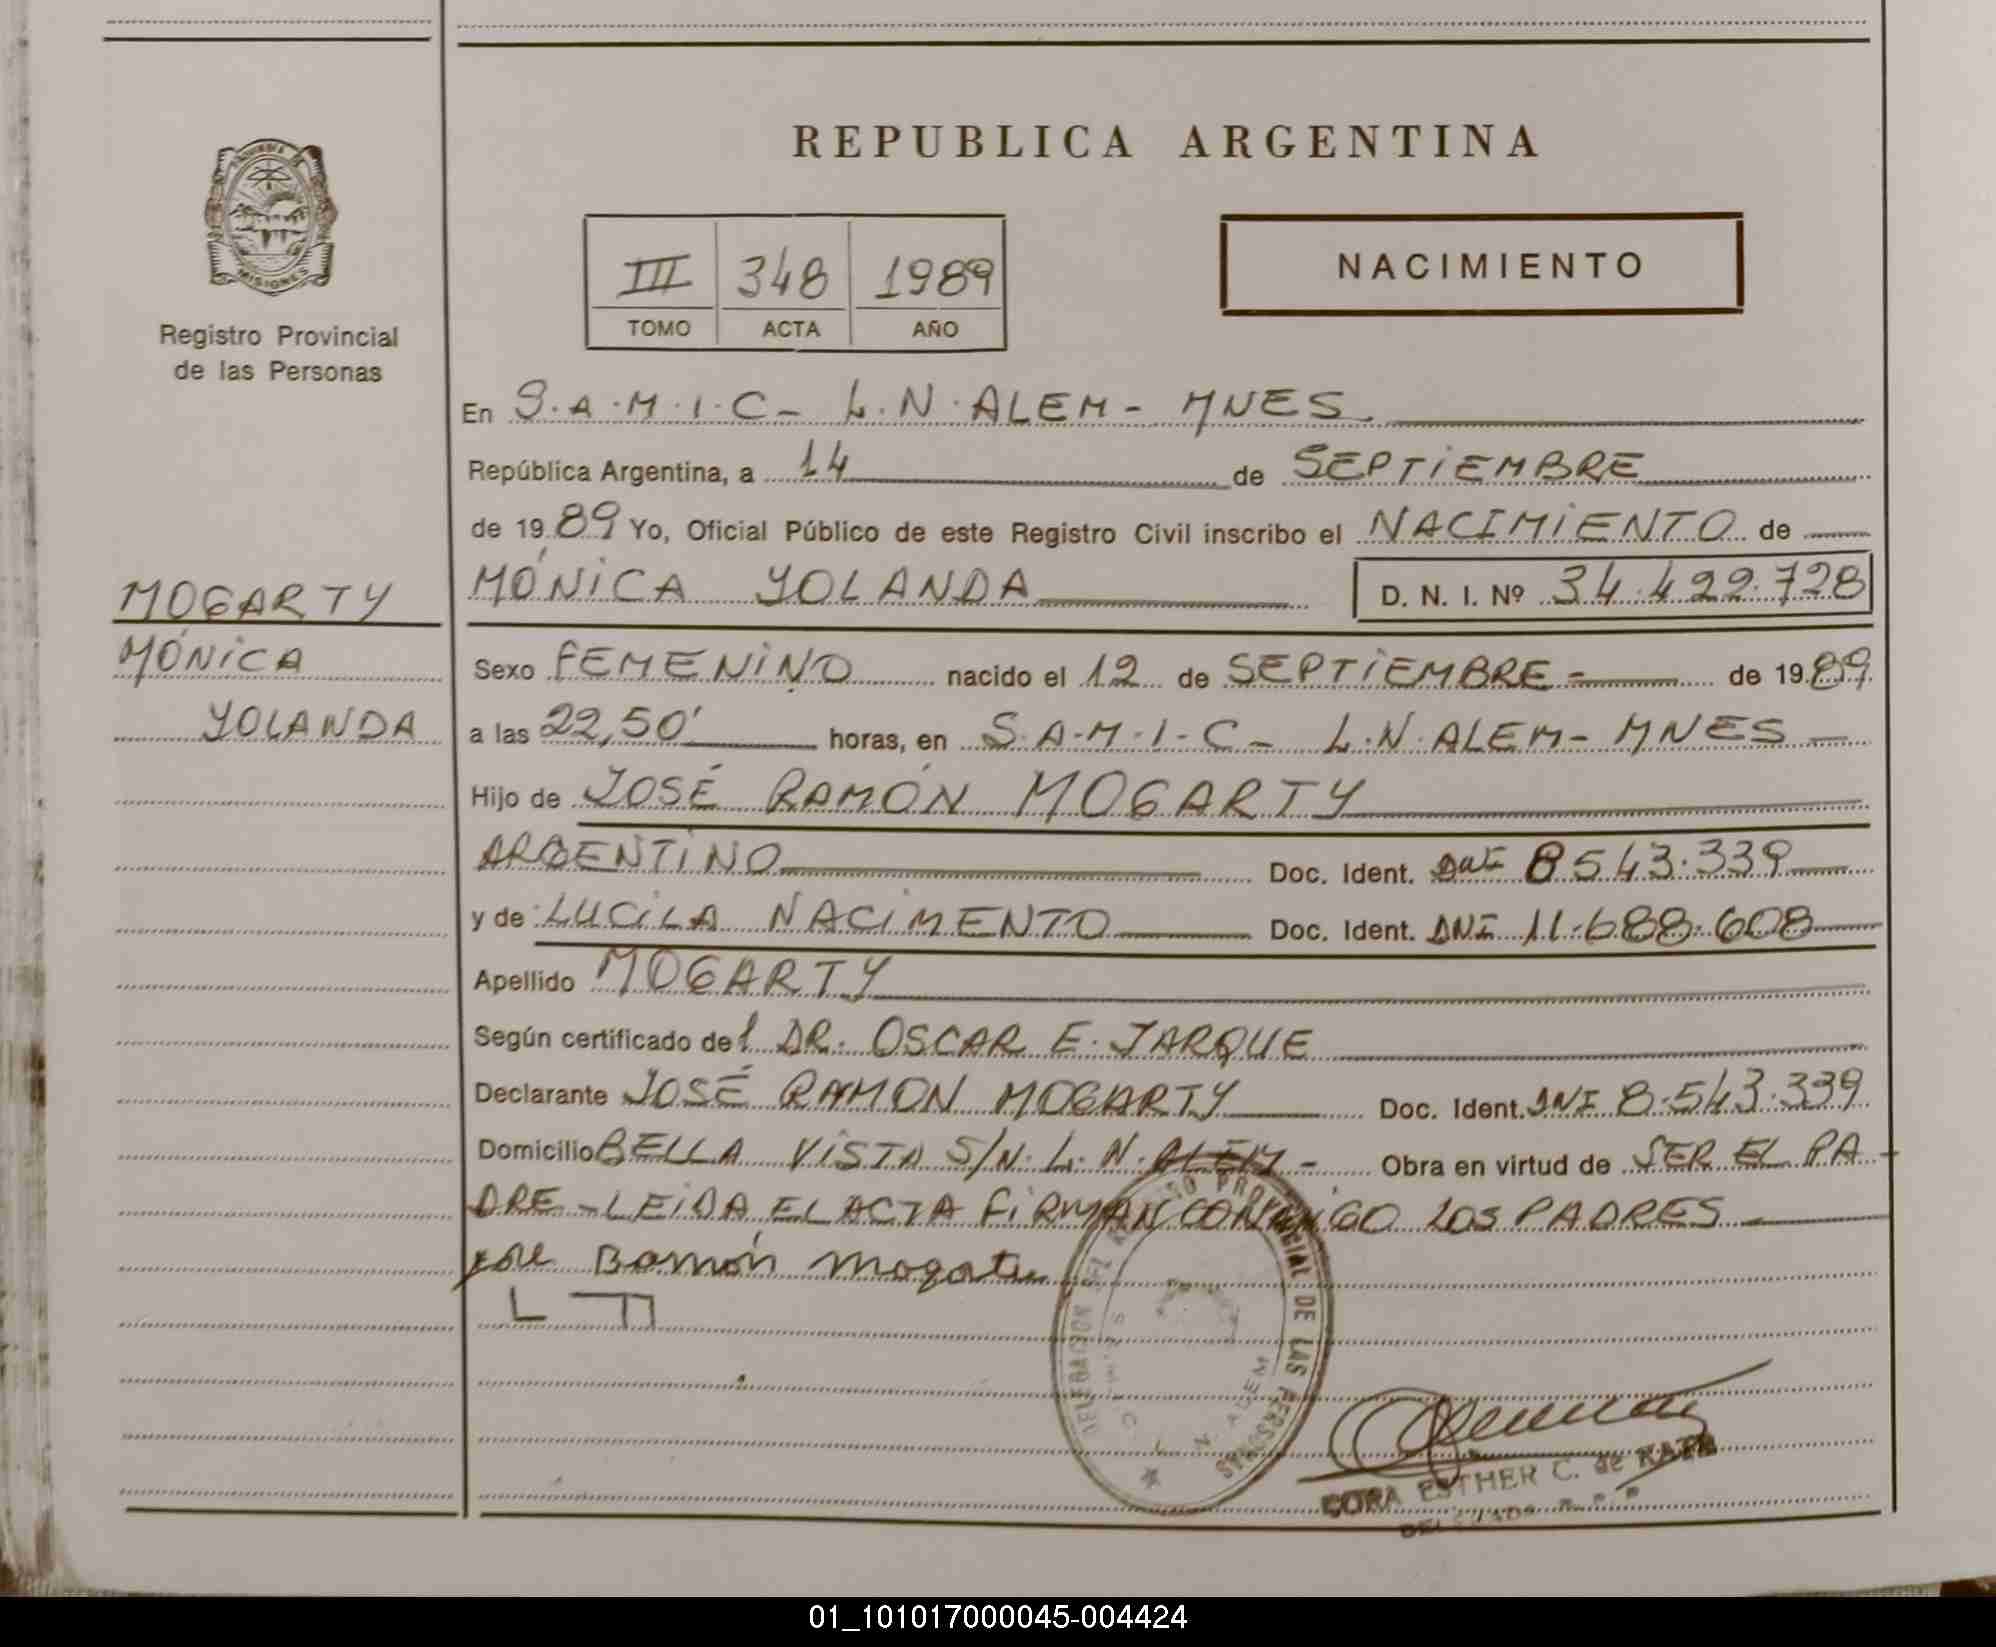 REPUBLICA ARGENTINA
MISIONES
Registro Provincial
de las Personas
III 348 1989
TOMO ACTA AÑO
NACIMIENTO
En S.A.M.I.C- L.N.ALEM- MNES.
República Argentina, a 14 de SEPTIEMBRE
de 1989 Yo, Oficial Público de este Registro Civil inscribo el NACIMIENTO de
MÓNICA YOLANDA D. N. I. Nº 34.422.728
MOGARTY
MÓNICA
YOLANDA
Sexo FEMENINO nacido el 12 de SEPTIEMBRE - de 1989
a las 22,50' horas, en S.A.M.I.C- L.N.ALEM- MNES
Hijo de JOSÉ RAMÓN MOGARTY
ARGENTINO Doc. Ident. DNI 8543.339
y de LUCILA NACIMENTO Doc. Ident. DNI 11.688.608
Apellido MOGARTY
Según certificado del DR. OSCAR E. JARQUE
Declarante JOSÉ RAMON MOGARTY Doc. Ident. DNI 8.543.339
Domicilio BELLA VISTA S/N. L.N.ALEM - Obra en virtud de SER EL PA-
DRE - LEIDA EL ACTA FIRMAN CONMIGO LOS PADRES
José Ramón
L
PROVINCIAL DE LAS PERSONAS
CORA ESTHER C. de
01_101017000045-004424